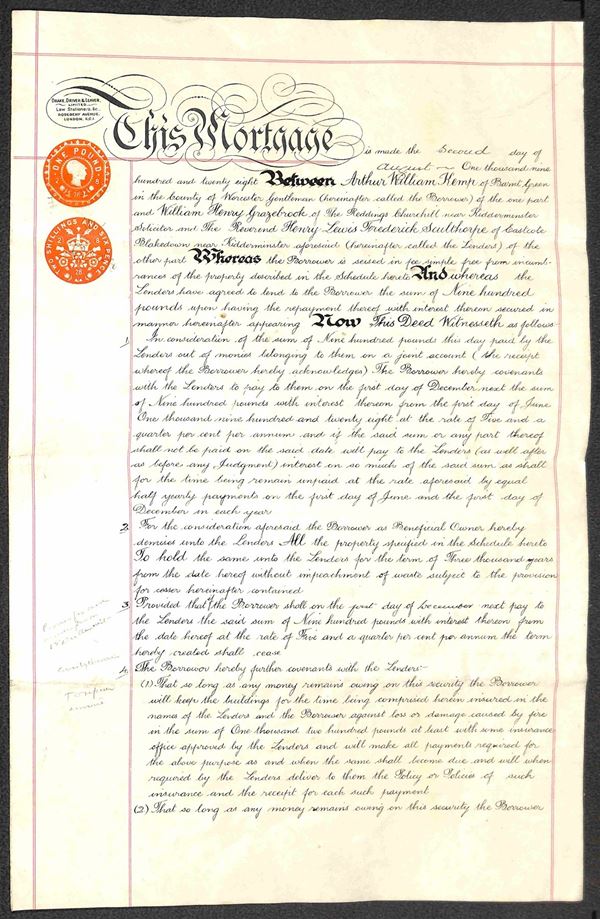 DRAKE, DRIVER & LEAVER,
LIMITED
Law Stationers, &c.
ROSEBERY AVENUE,
LONDON, E.C.1
This Mortgage is made the Second day of
August One thousand nine
ONE POUND
hundred and twenty eight Between Arthur William Hemp of Barnt Green
in the County of Worcester Gentleman (hereinafter called the Borrower) of the one part
and William Henry Grazebrook of The Reddings Churchill near Kidderminster
Solicitor and The Reverend Henry Lewis Frederick Sculthorpe of Eastcote
Blakedown near Kidderminster aforesaid (hereinafter called the Lenders) of the
TWO SHILLINGS AND SIXPENCE
other part Whereas the Borrower is seised in fee simple free from incumb-
rances of the property described in the Schedule hereto And whereas the
Lenders have agreed to lend to the Borrower the sum of Nine hundred
pounds upon having the repayment thereof with interest thereon secured in
manner hereinafter appearing Now This Deed Witnesseth as follows
1. In consideration of the sum of Nine hundred pounds this day paid by the
Lenders out of monies belonging to them on a joint account (the receipt
whereof the Borrower hereby acknowledges) The Borrower hereby covenants
with the Lenders to pay to them on the first day of December next the sum
of Nine hundred pounds with interest thereon from the first day of June
One thousand nine hundred and twenty eight at the rate of Five and a
quarter per cent per annum and if the said sum or any part thereof
shall not be paid on the said date will pay to the Lenders (as well after
as before any Judgment) interest on so much of the said sum as shall
for the time being remain unpaid at the rate aforesaid by equal
half yearly payments on the first day of June and the first day of
December in each year
2. For the consideration aforesaid the Borrower as Beneficial Owner hereby
demises unto the Lenders All the property specified in the Schedule hereto
To hold the same unto the Lenders for the term of Three thousand years
from the date hereof without impeachment of waste subject to the provision
for cesser hereinafter contained
3. Provided that if the Borrower shall on the first day of December next pay to
the Lenders the said sum of Nine hundred pounds with interest thereon from
the date hereof at the rate of Five and a quarter per cent per annum the term
hereby created shall cease
4. The Borrower hereby further covenants with the Lenders:-
(1) That so long as any money remains owing on this security the Borrower
will keep the buildings for the time being comprised herein insured in the
names of the Lenders and the Borrower against loss or damage caused by fire
in the sum of One thousand two hundred pounds at least with some insurance
office approved by the Lenders and will make all payments required for
the above purpose as and when the same shall become due and will when
required by the Lenders deliver to them the Policy or Policies of such
insurance and the receipt for each such payment
(2) That so long as any money remains owing on this security the Borrower